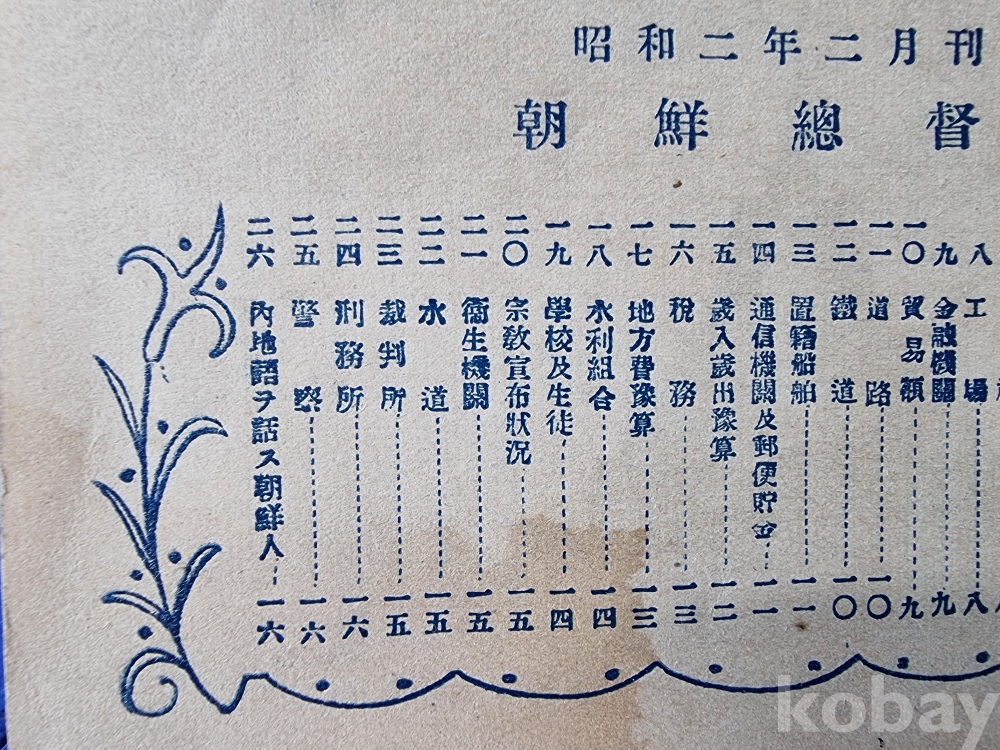 昭和二年二月刊
朝鮮總督
八 工場 八
九 金融機關 九
一〇 貿易額 九
一一 道路 一〇
一二 鐵道 一〇
一三 置籍船舶 一一
一四 通信機關及郵便貯金 一一
一五 歲入歲出豫算 一二
一六 稅務 一三
一七 地方費豫算 一三
一八 水利組合 一四
一九 學校及生徒 一四
二〇 宗敎宣布狀況 一五
二一 衞生機關 一五
二二 水道 一五
二三 裁判所 一五
二四 刑務所 一六
二五 警察 一六
二六 內地語ヲ話ス朝鮮人 一六
kobay